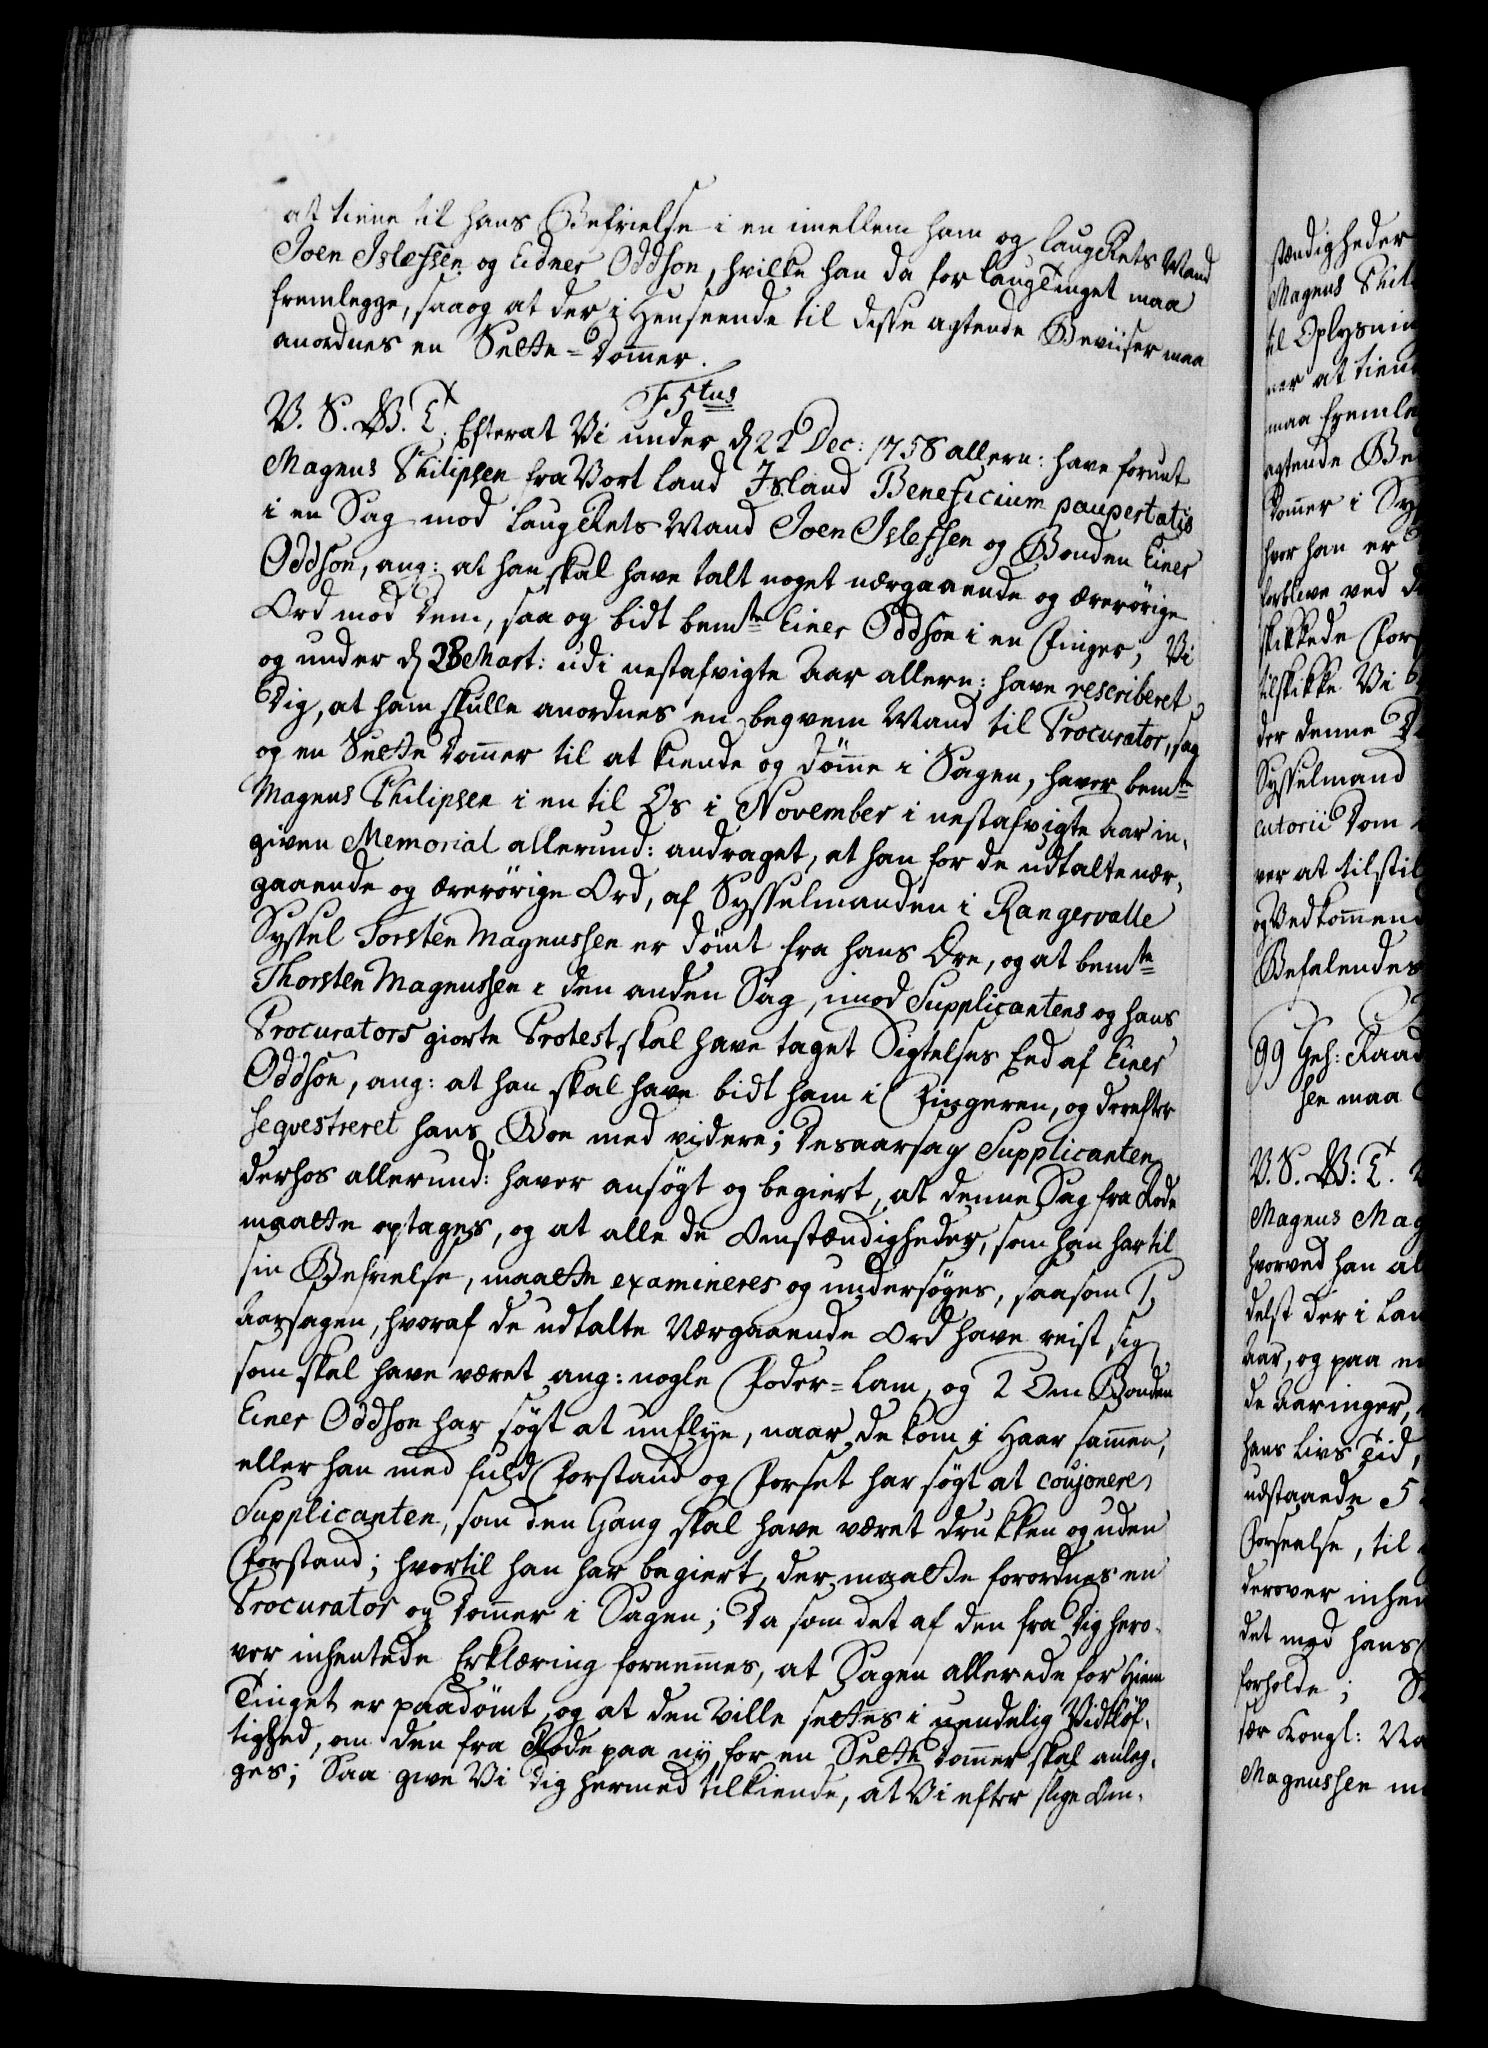 at tiene til hans Befrielse i en imellem ham og LaugRets Mand
Joen Islefsen og Eidner Oddson, hvilke han da for laugtinget maa
fremlegge, saa og at der i Henseende til disse agtende Beviiser maa
anordnes en Sætte-Dommer.
F 5tus
V. S. G. T. Efterat Vi under d 22 Dec: 1758 allern: have forunt
Magnus Philipsen fra Vort Land Island Beneficium paupertatis
i en Sag mod LaugRets Mand Joen Islefsen og Bonden Einer
Oddson, ang: at han skal have talt noget nærgaaende og ærerörige
Ord mod dem, saa og bidt bemte Einer Oddson i en Finger; Vi
og under d 28 Mart: udi nestafvigte Aar allern: have rescriberet
Dig, at ham skulle anordnes en beqvem Mand til Procurator, saa
og en Sætte Dommer til at kiende og dömme i Sagen, haver bemte
Magnus Philipsen i en til Os i November i nestafvigte Aar in-
given Memorial allerund: andraget, at han for de udtalte nær-
gaaende og ærerörige Ord, af Sysselmanden i Rangervalle
Syssel Torsten Magnussen er dömt fra hans Ære, og at bemte
Thorsten Magnussen i den anden Sag, imod Supplicantens og hans
Procurators giorte Protest skal have taget Sigtelses Eed af Einer
Oddson, ang: at han skal have bidt ham i Fingeren, og derefter
seqvestreret hans Boe med videre; Desaarsag Supplicanten
derhos allerund: haver ansögt og begiert, at denne Sag fra Rode
maatte optages, og at alle de Omstændigheder, som han har til
sin Befrielse, maatte examineres og undersöges, saasom 1,
Aarsagen, hvoraf de udtalte Nærgaaende Ord have reist sig,
som skal have været ang: nogle Foder-Lam, og 2 Om Bonden
Einer Oddson har sögt at undflye, naar de kom i Haar sammen,
eller han med fuld Forstand og Forset har sögt at coujonere
Supplicanten, som den Gang skal have været drukken og uden
Forstand; hvortil han har begiert, der maatte forordnes en
Procurator og Dommer i Sagen; Da som det af den fra Dig hero-
ver inhentede Erklæring fornemmes, at Sagen allerede for Hiem
Tinget er paadömt, og at den ville settes i uendelig Vidtlöf-
tighed, om den fra Rode paa ny for en Sætte Dommer skal anleg-
ges; Saa give Vi Dig hermed tilkiende, at Vi efter slige Om-
stændigheder
Magnus Phil
til Oplysnin
ner at tiene
maa fremle
agtende Be
Dommer i Sy
hvor han er
forblive ved D
skikkede For
tilskikke Vi
der denne D
Sysselmand
cutorii Dom
ver at tilstil
og Vedkommend
Befalendes
99 Geh: Raad
sen maa
V. S. G. T.
Magnus Mag
hvorved han al
delst der i Lan
Aar, og paa
de Aaringer,
hans Livs Tid,
udstaaende 5
Forseelse, til
derover inhen
det med hans
forholde;
sær Kongl: Na
Magnussen